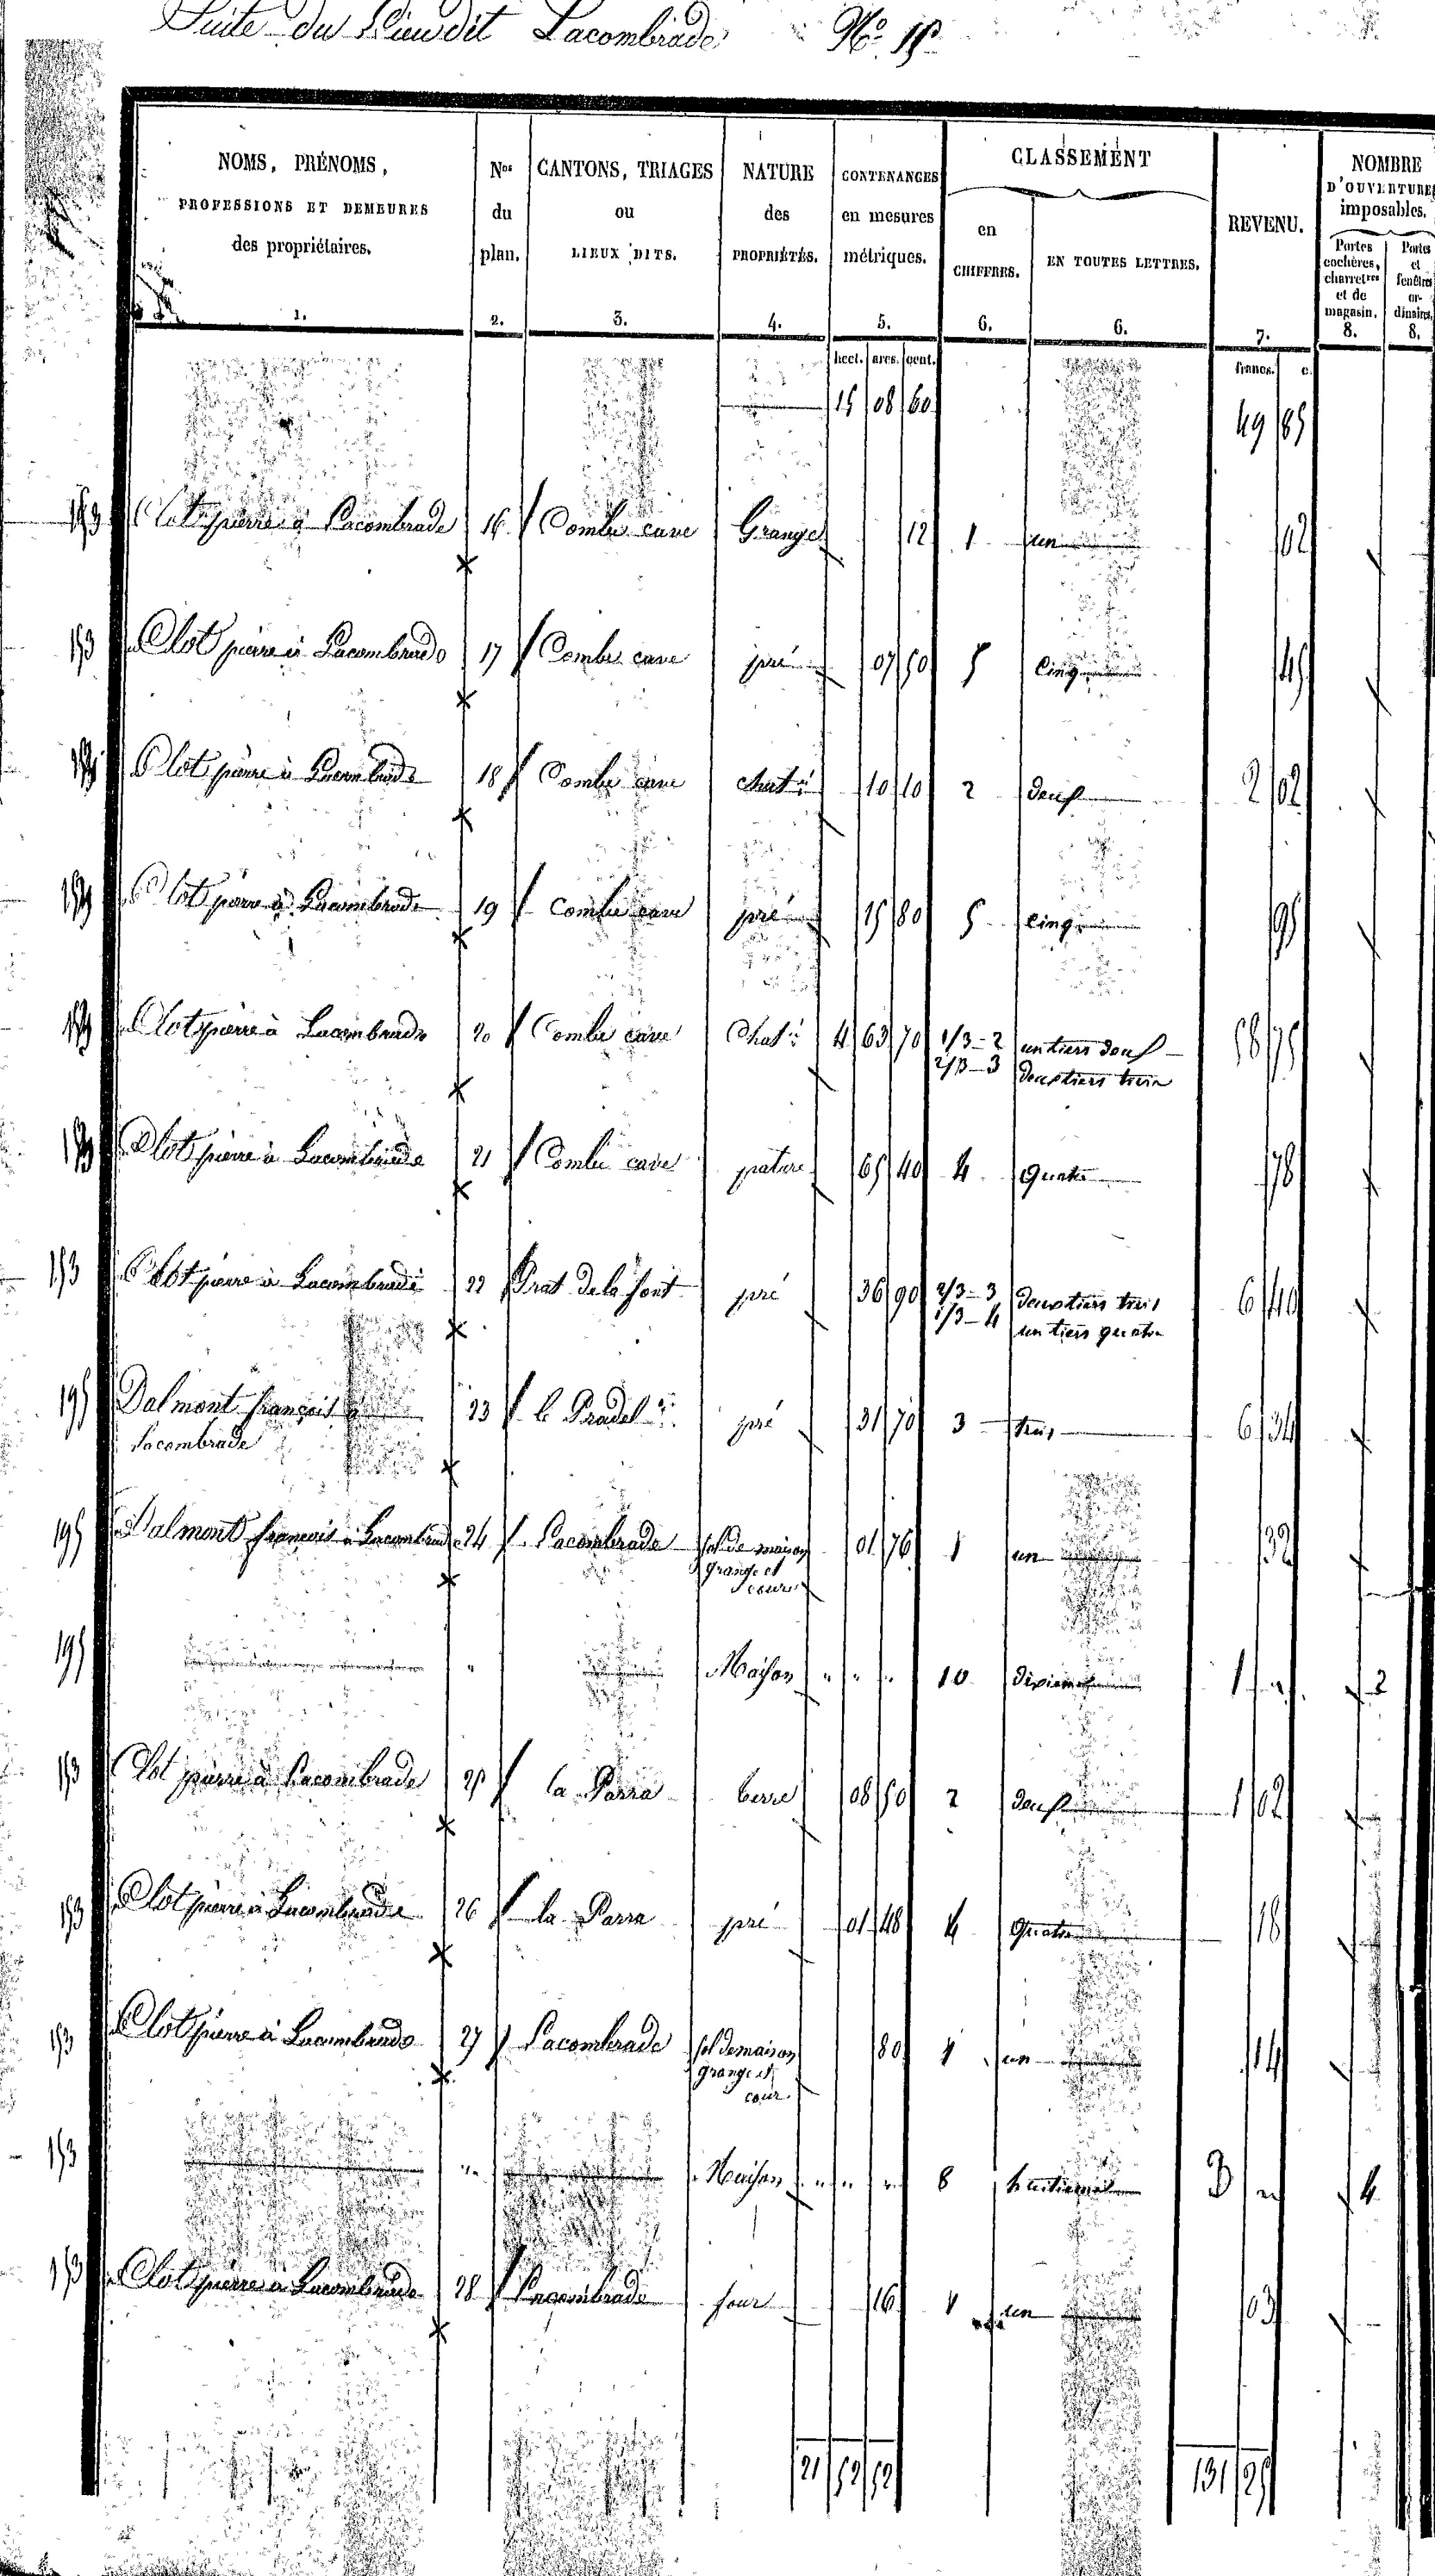 Suite du Lieu dit Lacombrade N° 15
NOMS, PRÉNOMS, PROFESSIONS ET DEMEURES des propriétaires. 1.
Nos du plan. 2.
CANTONS, TRIAGES ou LIEUX DITS. 3.
NATURE des PROPRIÉTÉS. 4.
CONTENANCES en mesures métriques. 5.
CLASSEMENT
en CHIFFRES. 6.
EN TOUTES LETTRES. 6.
REVENU. 7.
NOMBRE D'OUVERTURES imposables.
Portes cochères, charretres et de magasin. 8.
Portes et fenêtres or- dinaires. 8.
hect. ares. cent. francs. c.
15 08 60 49 85
153 Clot pierre à Lacombrade 16 Combe cave Grange 12 1 un 02
153 Clot pierre à Lacombrade 17 Combe cave pré 07 50 5 Cinq 45
153 Clot pierre à Lacombrade 18 Combe cave chat 10 10 2 deux 2 02
153 Clot pierre à Lacombrade 19 Combe cave pré 15 80 5 Cinq 95
153 Clot pierre à Lacombrade 20 Combe cave Chat 4 63 70 1/3 - 2 un tiers deux 58 75
2/3 - 3 deux tiers trois
153 Clot pierre à Lacombrade 21 Combe cave pature 65 40 4 Quatre 78
153 Clot pierre à Lacombrade 22 Prat de la font pré 36 90 2/3 - 3 deux tiers trois 6 40
1/3 - 4 un tiers quatre
195 Dalmont françois à 23 le Pradel pré 31 70 3 trois 6 34
Lacombrade
195 Dalmont françois à Lacombrade 24 Lacombrade sol de maison 01 76 1 un 32
grange et
cour
195 " Maison " " " 10 dixieme 1 " 2
153 Clot pierre à Lacombrade 25 la Parra terre 08 50 2 deux 1 02
153 Clot pierre à Lacombrade 26 la Parra pré 01 48 4 Quatre 18
153 Clot pierre à Lacombrade 27 Lacombrade sol de maison 80 1 un 14
grange et
cour
153 " Maison " " " 8 huitieme 3 " 4
153 Clot pierre à Lacombrade 28 Lacombrade four 16 1 un 03
21 52 52 131 25